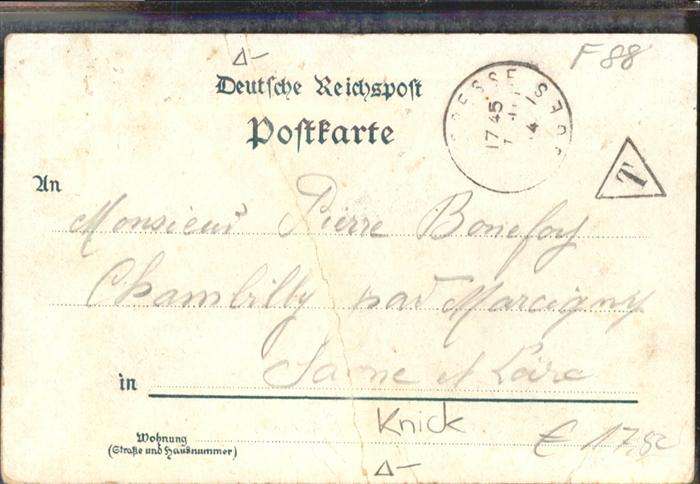 F 88
Deutsche Reichspost
Postkarte
17 45
T
An
Monsieur Pierre Bonefoy
Chambilly par Marcigny
in Saône et Loire
Knick
Wohnung
(Straße und Hausnummer)
€ 117,80